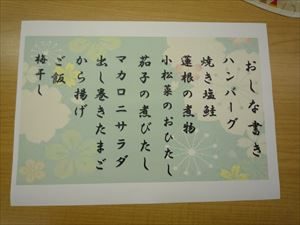 おしな書き
ハンバーグ
焼き塩鮭
蓮根の煮物
小松菜のおひたし
茄子の煮びたし
マカロニサラダ
出し巻きたまご
から揚げ
ご飯
梅干し